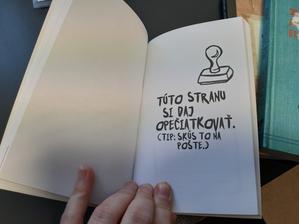 TÚTO STRANU
SI DAJ
OPEČIATKOVAŤ.
(TIP: SKÚS TO NA
POŠTE.)